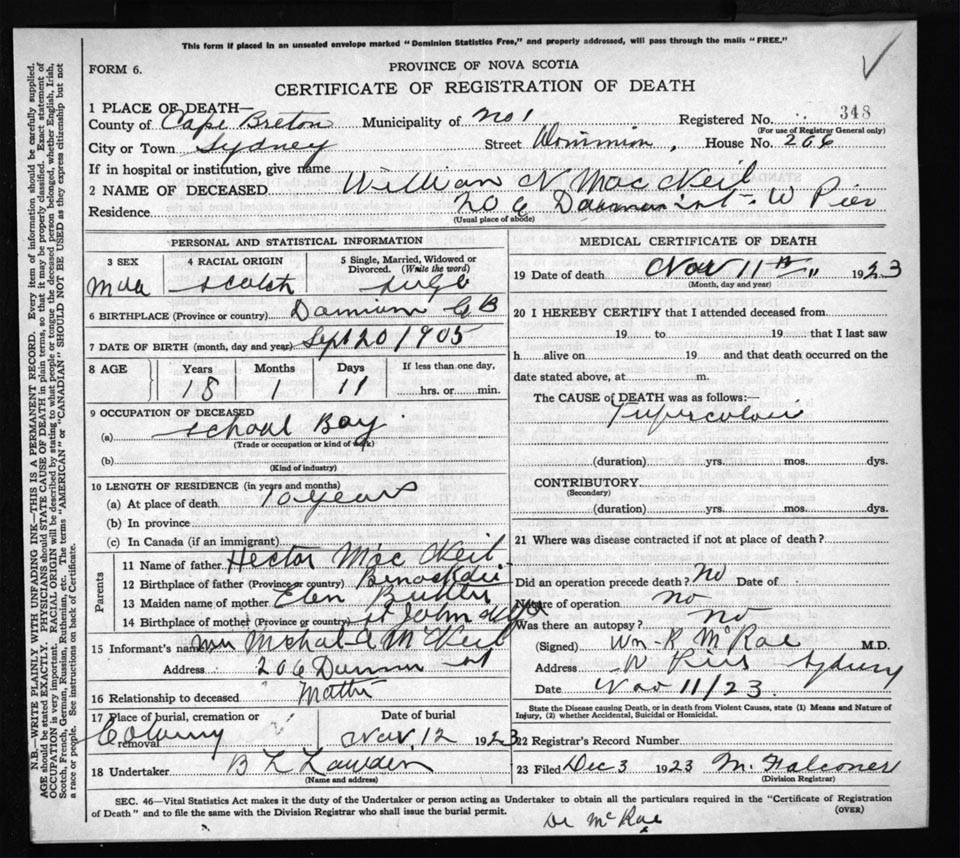 This form if placed in an unsealed envelope marked "Dominion Statistics Free," and properly addressed, will pass through the mails "FREE."
FORM 6.
PROVINCE OF NOVA SCOTIA
CERTIFICATE OF REGISTRATION OF DEATH
N.B.—WRITE PLAINLY WITH UNFADING INK—THIS IS A PERMANENT RECORD. Every item of information should be carefully supplied.
AGE should be stated EXACTLY. PHYSICIANS should STATE CAUSE OF DEATH in plain terms, so that it may be properly classified. Exact statement of
OCCUPATION is very important. RACIAL ORIGIN will be described by stating to what people or tongue the deceased person belonged, whether English, Irish,
Scotch, French, German, Russian, Ruthenian, etc. The terms "AMERICAN" or "CANADIAN" SHOULD NOT BE USED as they express citizenship but not
a race or people. See instructions on back of Certificate.
1 PLACE OF DEATH—
County of Cape Breton Municipality of No 1 Registered No. 348
(For use of Registrar General only)
City or Town Sydney Street Dominion, House No. 206
If in hospital or institution, give name
2 NAME OF DECEASED William N Mac Neil
Residence 206 W Pier
(Usual place of abode)
PERSONAL AND STATISTICAL INFORMATION
3 SEX
4 RACIAL ORIGIN
5 Single, Married, Widowed or Divorced. (Write the word)
Male Scotch Single
6 BIRTHPLACE (Province or country) Dominion C B
7 DATE OF BIRTH (month, day and year) Sept 20 1905
8 AGE
Years Months Days If less than one day,
18 1 11 hrs. or min.
9 OCCUPATION OF DECEASED
(a) School Boy
(Trade or occupation or kind of work)
(b)
(Kind of industry)
10 LENGTH OF RESIDENCE (in years and months)
(a) At place of death 10 years
(b) In province
(c) In Canada (if an immigrant)
Parents
11 Name of father Hector Mac Neil
12 Birthplace of father (Province or country)
13 Maiden name of mother Elen
14 Birthplace of mother (Province or country) St John
15 Informant's name Mrs McNeil
Address 206 st
16 Relationship to deceased Mother
17 Place of burial, cremation or removal
Date of burial
Nov. 12 1923
18 Undertaker B L
(Name and address)
MEDICAL CERTIFICATE OF DEATH
19 Date of death Nov 11th 1923
(Month, day and year)
20 I HEREBY CERTIFY that I attended deceased from
19 to 19 that I last saw
h alive on 19 and that death occurred on the
date stated above, at m.
The CAUSE of DEATH was as follows:—
(duration) yrs. mos. dys.
CONTRIBUTORY
(Secondary)
(duration) yrs. mos. dys.
21 Where was disease contracted if not at place of death?
Did an operation precede death? No Date of
Nature of operation no
Was there an autopsy? no
(Signed) Wm. R McRae M.D.
Address W Pier Sydney
Date Nov 11/23.
State the Disease causing Death, or in death from Violent Causes, state (1) Means and Nature of Injury, (2) whether Accidental, Suicidal or Homicidal.
22 Registrar's Record Number
23 Filed Dec 3 1923 M. Falconer
(Division Registrar)
SEC. 46—Vital Statistics Act makes it the duty of the Undertaker or person acting as Undertaker to obtain all the particulars required in the "Certificate of Registration
of Death" and to file the same with the Division Registrar who shall issue the burial permit.
(OVER)
Dr McRae